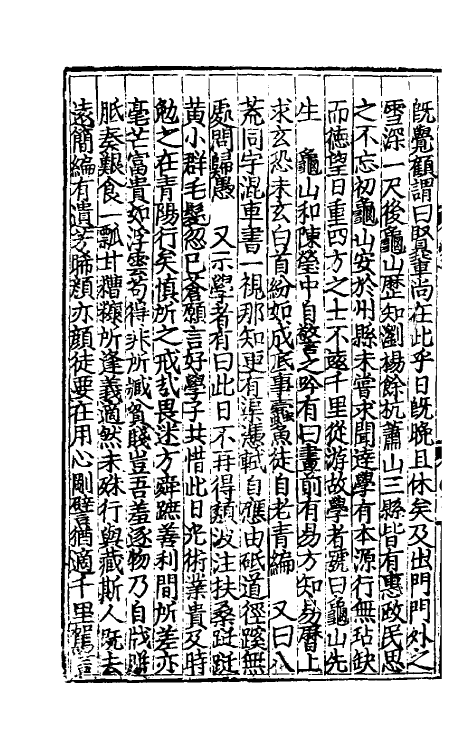 既覺顧謂曰賢輩尚在此乎日既晚且休矣及出門門外之
雪深一尺後龜山歷知瀏楊餘杭蕭山三縣皆有惠政民思
之不忘初龜山安於州縣未嘗求聞達學有本源行無玷缺
而德望日重四方之士不遠千里從游故學者號曰龜山先
生　龜山和陳瑩中自警之吟有曰畫前有易方知易曆上
求玄恐未玄白首紛如成底事蠹魚徒自老青編　又曰八
荒同宇混車書一視那知更有渠憑軾自應由砥道徑蹊無
處問歸愚　又示學者有曰此日不再得頹波注扶桑躚躚
黃小群毛髮忽已蒼願言好學子共惜此日光術業貴及時
勉之在青陽行矣慎所之戒哉畏迷方舜蹠善利間所差亦
毫芒富貴如浮雲苟得非所臧貧賤豈吾羞逐物乃自戕胼
胝奏艱食一瓢甘糟糠所逢義適然未殊行與藏斯人既去
遠簡編有遺芳睎顏亦顏徒要在用心剛譬猶適千里駕言